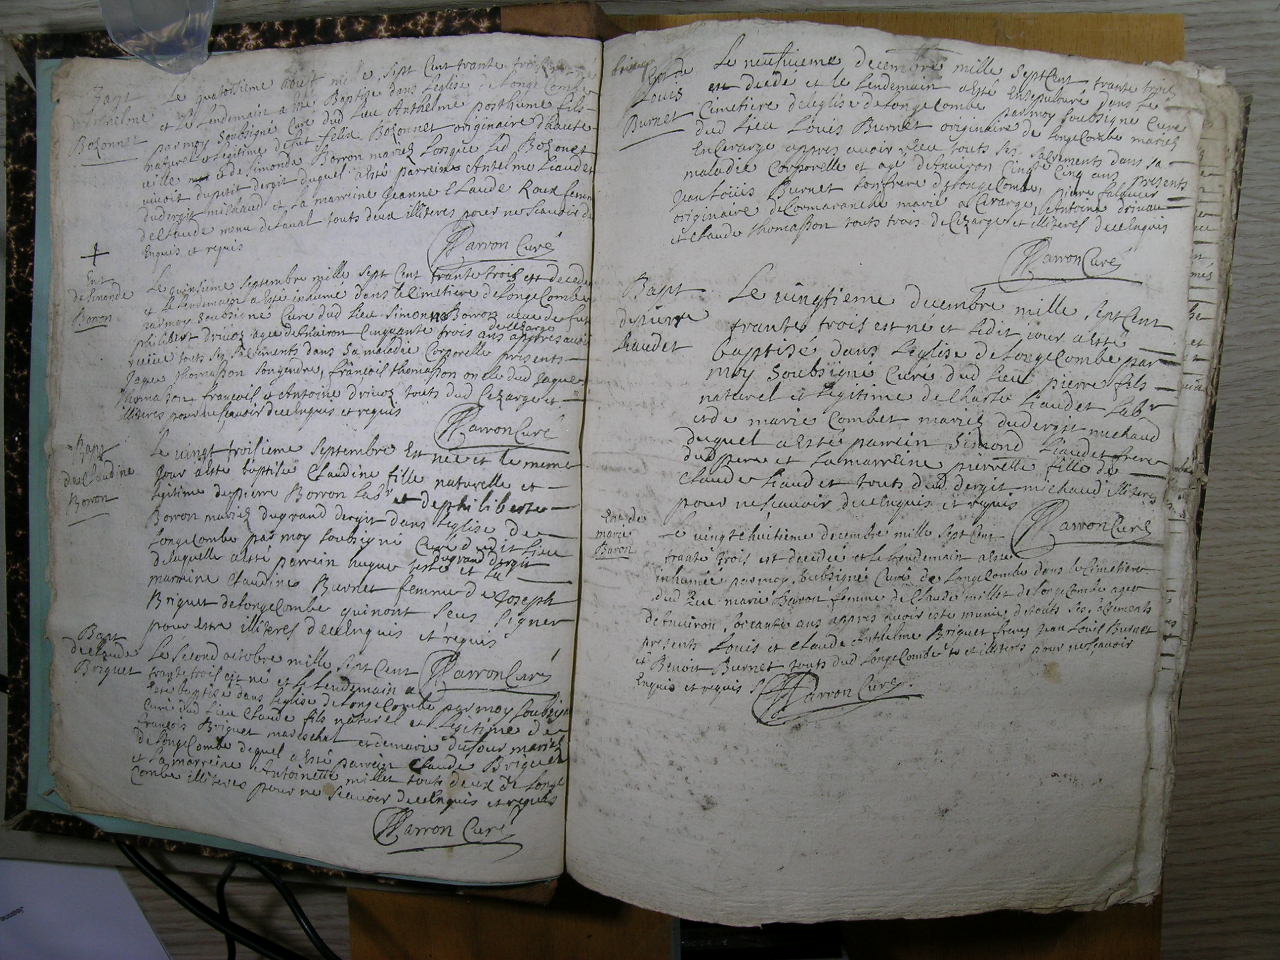 Bapt
d'Anthelme
Bozonnet
Le quatorsieme aoust mille sept Cent trante trois
et le Lendemain a été Baptisé dans Leglise de Longe Combe
par moy soubsigné Curé dud Lieu Anthelme posthume fils
naturel et Legitime de feu felix Bozonnet originaire d'haute
ville et de Simonde Borron mariez Longue Led Bozonet
vivoit du petit dergit duquel a été parrein Anthelme Liaudet
dudergit michaud et sa marrine Jeanne Claude Roux femme
de Claude menu de tous deux illiteres pour ne scavoir de
Enquis et requis
Barron Curé
Ent
de Simonde
Boron
Le quinsieme septembre mille sept Cent trante trois est decedée
et le Lendemain a été inhumé dans le Cimetiere de Longe Combe
par moy soussigné Curé dud Lieu Simonde Borron veuve de feu
philibert agée d'environ Cinquante trois ans appres avoir
receue touts ses sacrements dans sa maladie Corporelle presents
Jaque Thomasson son gendre, francois thomasson oncle dud Jaque
Thomasson francois et Antoine touts dud Cezarge et
illiteres pour ne scavoir de ce enquis et requis
Barron Curé
Bapt
de Claudine
Borron
Le vingt troisieme septembre Est née et le meme
Jour a été baptisé Claudine fille naturelle et
legitime de pierre Borron Labr et de philiberte
Borron mariez du grand dergit dans Leglise de
Longe Combe par moy soubsigné Curé dudit Lieu
de laquelle a été parrein hugue du grand dergit
marraine Claudine Burnet femme de Joseph
Briquet de Longe Combe qui nont sceus signer
pour estre illiteres de ce enquis et requis
Barron Curé
Bapt
de Claude
Briquet
Le second octobre mille sept Cent
trante trois est né et le lendemain a
été baptisé dans Leglise de Longe Combe par moy soubsigné
Curé dud Lieu Claude fils naturel et Legitime de
francois Briquet mareschal et de marie dufour mariez
de Longe Combe duquel a été parrein Claude Briquet
et sa marreine Antoinette millet touts deux de Longe
Combe illiteres pour ne scavoir de ce enquis et requis
Barron Curé
Ent de
Louis
Burnet
Le neufvieme decembre mille sept Cent trante trois
est decedé et le lendemain a été ensepulturé dans Le
Cimetiere d'eglise de Longe Combe par moy soubsigné Curé
dud Lieu Louis Burnet originaire de Longe Combe mariez
en Cerarge appres avoir receu touts ses sacrements dans sa
maladie Corporelle et agé d'environ Cinquante Cinq ans presents
Jean Louis Burnet son frere de Longe Combe, pierre
originaire de Cormaranche marié a Cerarge, Antoine
et Claude thomasson touts trois de Cezarge et illiteres de ce enquis
Barron Curé
Bapt
de pierre
Liaudet
Le vingtieme decembre mille sept Cent
trante trois est né et ledit jour a été
baptisé dans Leglise de Longe Combe par
moy soubsigné Curé dud Lieu pierre fils
naturel et Legitime de Charle Liaudet Labr
et de marie Combet mariez dudergit michaud
duquel a Esté parrein Simond Liaudet frere
dud pere et sa marreine pierrette fille de
Claude Liaudet touts deux dergit michaud illiteres
pour ne scavoir de ce enquis et requis
Barron Curé
Ent de
marie
Baron
Le vingt huitieme decembre mille sept Cent
trante trois est decedée et le lendemain a été
inhumée par moy soubsigné Curé de Longe Combe dans le Cimetiere
dud Lieu marie Baron femme de Claude millet de Longe Combe agée
d'environ soixante ans appres avoir esté munie de touts ses sacrements
presents Louis et Claude Anthelme Briquet freres Jean Louis Burnet
et Benoit Burnet touts dud Longe Combe et illiteres pour ne scavoir
Enquis et requis
Barron Curé